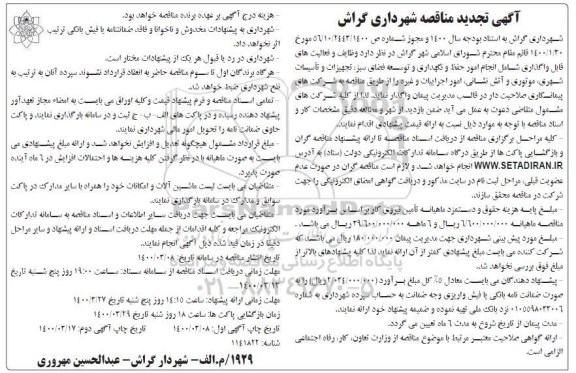 آگهی تجدید مناقصه شهرداری گراش
شهرداری گراش به استناد بودجه سال ۱۴۰۰ و مجوز شماره ص ۱۴۰۰/۵۶/۱۰/۲۴۴۳ مورخ
۱۴۰۰/۱/۳۰ قائم مقام محترم شورای اسلامی شهر گراش در نظر دارد وظایف و فعالیت های
قابل واگذاری شامل انجام امور حفظ و نگهداری و توسعه فضای سبز، تجهیزات و تأسیسات
شهری، موتوری و آتش نشانی، امور اجراییات و غیره را از طریق مناقصه به شرکت های
پیمانکاری صلاحیت دار در قالب مدیریت پیمان واگذار نماید. لذا از کلیه شرکت های
مشمول متقاضی دعوت به عمل می آید ضمن بازدید از شهر و مطالعه دقیق مشخصات کار و
اسناد مناقصه با توجه به موارد ذیل نسبت به ارائه قیمت پیشنهادی اقدام نمایند.
- کلیه مراحل برگزاری مناقصه از دریافت اسناد مناقصه تا ارائه پیشنهاد مناقصه گران
و بازگشایی پاکت ها از طریق درگاه سامانه تدارکات الکترونیکی دولت (ستاد) به آدرس
WWW.SETADIRAN.IR انجام خواهد شد و لازم است مناقصه گران در صورت عدم
عضویت قبلی، مراحل ثبت نام در سایت مذکور و دریافت گواهی امضای الکترونیکی را جهت
شرکت در مناقصه محقق سازند.
- مبلغ پایه هزینه حقوق و دستمزد ماهیانه تأمین نیروی کار براساس برآورد مورد
مناقصه ماهیانه ۶/۶۰۰/۰۰۰/۰۰۰ ریال و ۶ ماهه ۳۹/۶۰۰/۰۰۰/۰۰۰ ریال می باشد.
- مبلغ مورد پیش بینی شهرداری جهت مدیریت پیمان ۱۸۰/۰۰۰/۰۰۰ ریال می باشد که
شرکت کننده می بایست مبلغ پیشنهادی کمتر از آن ارائه نماید لذا کلیه پیشنهادهای بالاتر از
مبلغ فوق بررسی نخواهد شد.
- پیشنهاد دهندگان می بایست معادل ۵٪ کل مبلغ برآورد (۲/۰۳۴/۰۰۰/۰۰۰ ریال) را به
صورت ضمانت نامه بانکی یا فیش واریزی وجه ضمانت به حساب سپرده شهرداری به شماره
۰۱۰۵۵۹۸۰۲۳۰۰۶ نزد بانک ملی تهیه نموده و ضمیمه پیشنهاد خود ارائه نمایند.
- مدت پیمان از تاریخ شروع به مدت ۶ ماه تعیین می گردد.
- ارائه گواهی صلاحیت معتبر مرتبط با موضوع مناقصه از وزارت تعاون، کار، رفاه اجتماعی
الزامی است.
- هزینه درج آگهی بر عهده برنده مناقصه خواهد بود.
- شهرداری به پیشنهادات مخدوش و ناخوانا و فاقد ضمانتنامه یا فیش بانکی ترتیب
اثر نخواهد داد.
- شهرداری در رد یا قبول هر یک از پیشنهادات مختار است.
- هرگاه برندگان اول تا سوم مناقصه حاضر به انعقاد قرارداد نشوند سپرده آنان به ترتیب به
نفع شهرداری ضبط خواهد شد.
- تمامی اسناد مناقصه و فرم پیشنهاد قیمت و کلیه اوراق می بایست به امضاء مجاز تعهدآور
پیشنهاد دهنده رسیده و در پاکت های الف - ب - ج ثبت و در سامانه بارگذاری نمایند و پاکت
حاوی ضمانت نامه را تحویل امور مالی شهرداری نمایند.
- مبلغ قرارداد مشمول هیچگونه تعدیل و افزایش نخواهد شد و ارائه مبلغ پیشنهادی می
بایست به صورت ماهیانه با در نظر گرفتن کلیه هزینه ها و احتمالات افزایش در ۶ ماه آینده
صورت پذیرد.
- متقاضیان می بایست لیست ماشین آلات و امکانات خود را همراه با سایر مدارک در پاکت
سوابق و مدارک در سامانه بارگذاری نمایند.
- متقاضیان می بایست جهت دریافت سایر اطلاعات و اسناد مناقصه به سامانه تدارکات
الکترونیک مراجعه و کلیه اقدامات از جمله مهلت دریافت اسناد و ارائه پیشنهاد و سایر مراحل
دقیقا در زمان قید شده ذیل آگهی انجام نمایند.
تاریخ انتشار مناقصه در سامانه تاریخ: ۱۴۰۰/۰۳/۰۸
مهلت زمانی دریافت اسناد مناقصه از سامانه ستاد: ساعت ۱۹:۰۰ روز پنج شنبه تاریخ
۱۴۰۰/۰۳/۱۳
مهلت زمانی ارائه پیشنهاد: ساعت ۱۴:۱۵ روز پنج شنبه تاریخ ۱۴۰۰/۳/۲۷
زمان بازگشایی پاکت ها: ساعت ۱۸ روز شنبه تاریخ ۱۴۰۰/۰۳/۲۹
تاریخ چاپ آگهی اول: ۱۴۰۰/۰۳/۰۸ تاریخ چاپ آگهی دوم: ۱۴۰۰/۰۳/۱۷
شناسه: ۱۱۴۱۸۲۲
۱۹۲۹/م.الف- شهردار گراش- عبدالحسین مهروری